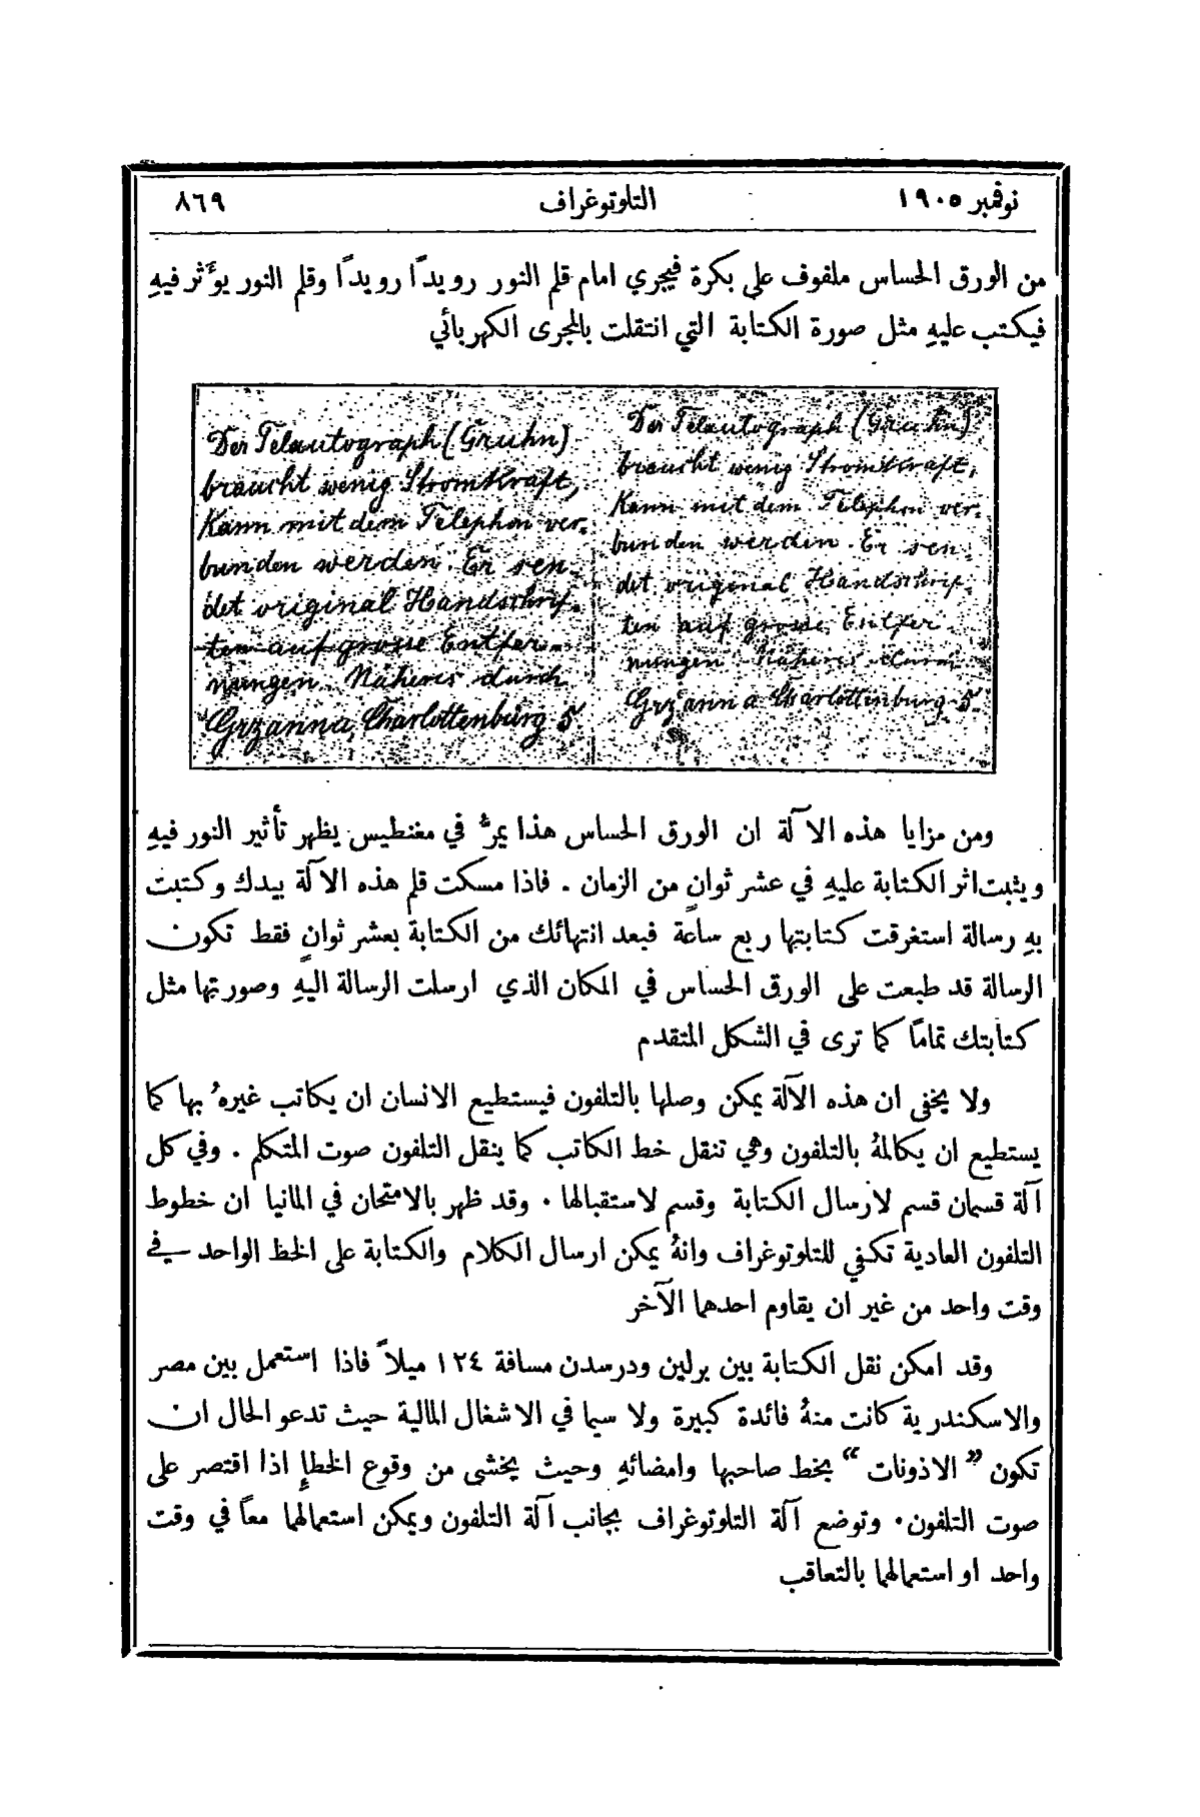 نوفمبر ١٩٠٥ التلوتوغراف ٨٦٩
من الورق الحساس ملفوف على بكرة فيجري امام قلم النور رويدًا رويدًا وقلم النور يؤَثر فيهِ
فيكتب عليهِ مثل صورة الكتابة التي انتقلت بالمجرى الكهربائي
Der Telautograph (Gruhn)
braucht wenig Stromkraft,
Kann mit dem Telephon ver-
bunden werden. Er sen-
det original Handschrif-
ten auf grosse Entfer-
nungen. Näheres durch
Grzanna, Charlottenburg 5
Der Telautograph (Gruhn)
braucht wenig Stromkraft,
Kann mit dem Telephon ver-
bunden werden. Er sen-
det original Handschrif-
ten auf grosse Entfer-
nungen. Näheres durch
Grzanna Charlottenburg 5.
ومن مزايا هذه الآلة ان الورق الحساس هذا يمرُّ في مغنطيس يظهر تأثير النور فيهِ
ويثبت اثر الكتابة عليهِ في عشر ثوانٍ من الزمان . فاذا مسكت قلم هذه الآلة بيدك وكتبت
بهِ رسالة استغرقت كتابتها ربع ساعة فبعد انتهائك من الكتابة بعشر ثوانٍ فقط تكون
الرسالة قد طبعت على الورق الحساس في المكان الذي ارسلت الرسالة اليهِ وصورتها مثل
كتابتك تمامًا كما ترى في الشكل المتقدم
ولا يخفى ان هذه الآلة يمكن وصلها بالتلفون فيستطيع الانسان ان يكاتب غيرهُ بها كما
يستطيع ان يكالمهُ بالتلفون وهي تنقل خط الكاتب كما ينقل التلفون صوت المتكلم . وفي كل
آلة قسمان قسم لارسال الكتابة وقسم لاستقبالها . وقد ظهر بالامتحان في المانيا ان خطوط
التلفون العادية تكفي للتلوتوغراف وانهُ يمكن ارسال الكلام والكتابة على الخط الواحد في
وقت واحد من غير ان يقاوم احدهما الآخر
وقد امكن نقل الكتابة بين برلين ودرسدن مسافة ١٢٤ ميلاً فاذا استعمل بين مصر
والاسكندرية كانت منهُ فائدة كبيرة ولا سيما في الاشغال المالية حيث تدعو الحال ان
تكون "الاذونات" بخط صاحبها وامضائهِ وحيث يخشى من وقوع الخطإِ اذا اقتصر على
صوت التلفون . وتوضع آلة التلوتوغراف بجانب آلة التلفون ويمكن استعمالهما معاً في وقت
واحد او استعمالهما بالتعاقب